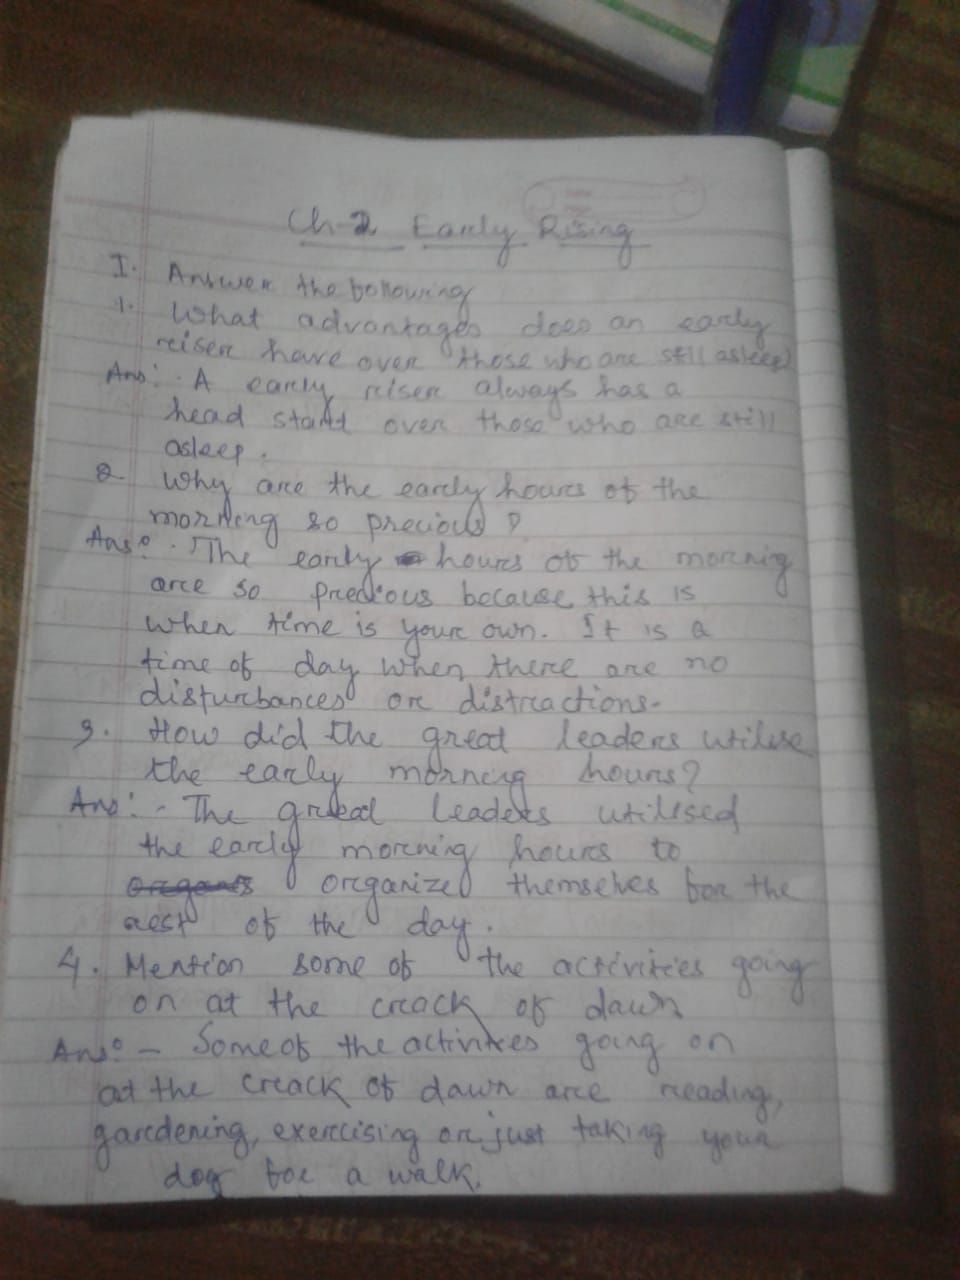 Ch-2 Early Rising
I. Answer the following
1. What advantages does an early
riser have over those who are still asleep?
Ans:- A early riser always has a
head start over those who are still
asleep.
2. Why are the early hours of the
morning so precious?
Ans:- The early hours of the morning
are so precious because this is
when time is your own. It is a
time of day when there are no
disturbances or distractions.
3. How did the great leaders utilise
the early morning hours?
Ans:- The great leaders utilised
the early morning hours to
organize themselves for the
rest of the day.
4. Mention some of the activities going
on at the crack of dawn
Ans:- Some of the activities going on
at the crack of dawn are reading,
gardening, exercising or just taking your
dog for a walk.